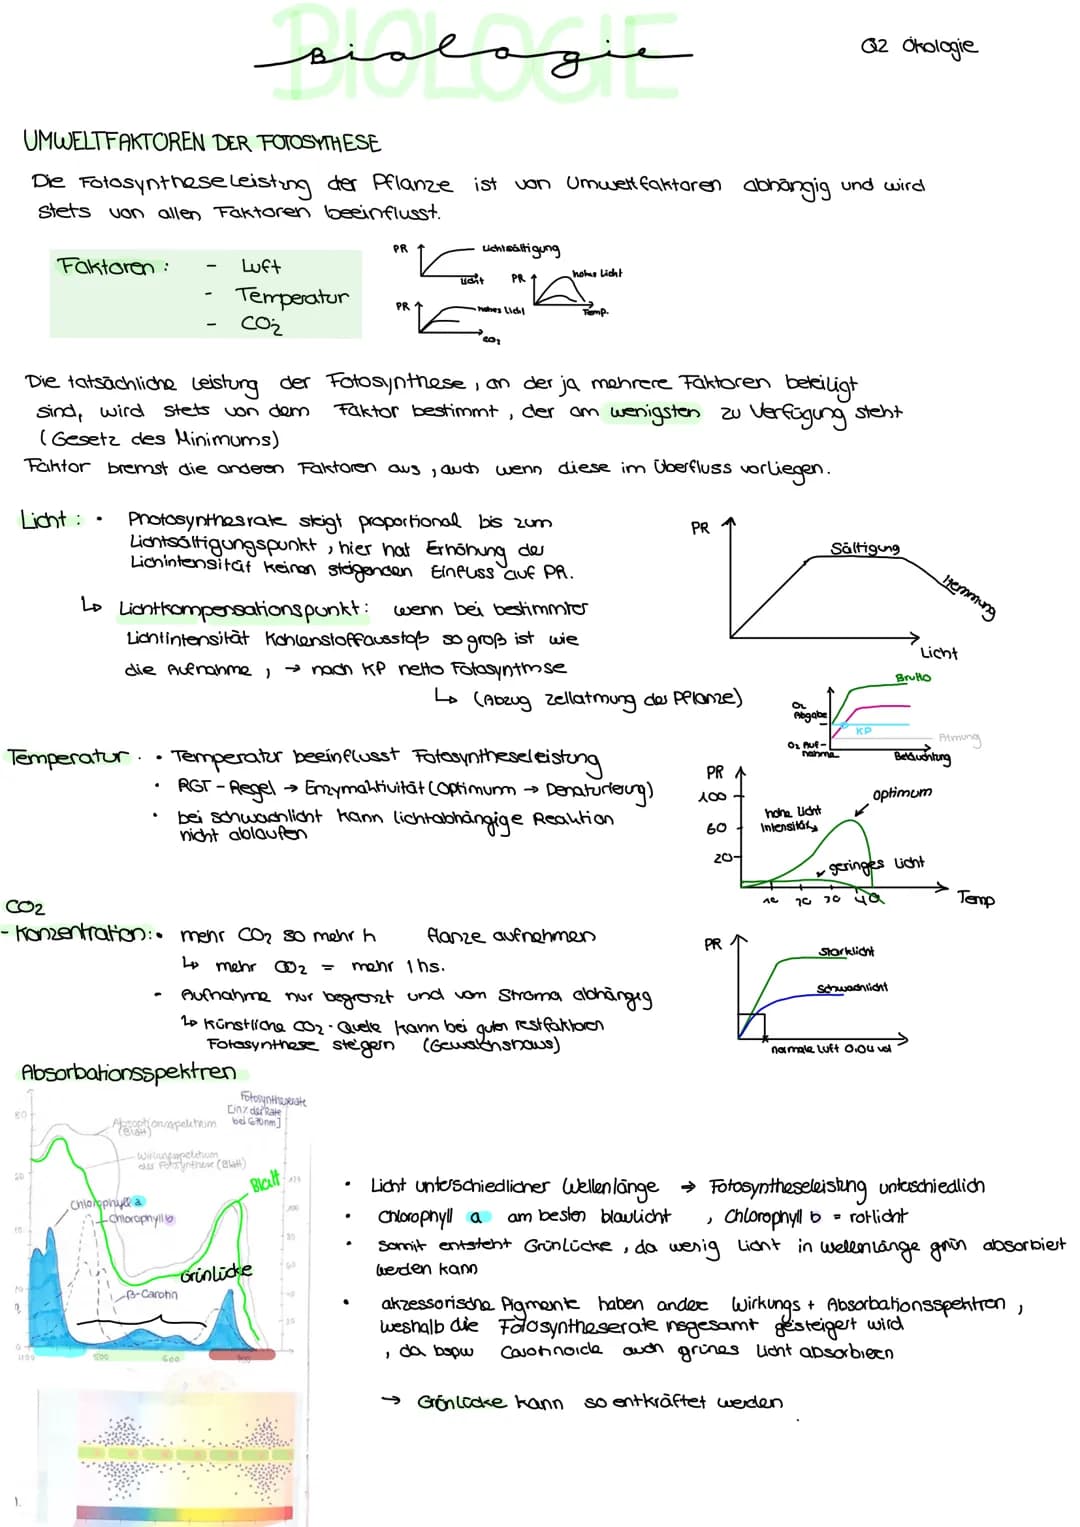 BIOLOGIE
Biologie
Q2 Ökologie
UMWELTFAKTOREN DER FOTOSYTHESE
Die Fotosyntheseleistung der Pflanze ist von Umweltfaktoren abhängig und wird
stets von allen Faktoren beeinflusst.
Faktoren :
- Luft
- Temperatur
- CO2
PR
Lichtsättigung
Licht
PR
hohes Licht
Temp.
PR
hohes Licht
CO2
Die tatsächliche Leistung der Fotosynthese, an der ja mehrere Faktoren beteiligt
sind, wird stets von dem Faktor bestimmt, der am wenigsten zu Verfügung steht
(Gesetz des Minimums)
Faktor bremst die anderen Faktoren aus, auch wenn diese im Überfluss vorliegen.
Licht : • Photosyntheserate steigt proportional bis zum
Lichtsättigungspunkt, hier hat Erhöhung der
Lichintensität keinen steigenden Einfluss auf PR.
↳ Lichtkompensationspunkt: wenn bei bestimmter
Lichtintensität Kohlenstoffausstoß so groß ist wie
die Aufnahme, → nach KP netto Fotosynthese
↳ (Abzug Zellatmung der Pflanze)
PR
Sättigung
Hemmung
Licht
Brutto
O2 Abgabe
KP
O2 Auf-
nahme
Atmung
Beläuchtung
Temperatur . • Temperatur beeinflusst Fotosyntheseleistung
• RGT-Regel → Enzymaktivität (Optimum → Denaturierung)
• bei schwachlicht kann lichtabhängige Reaktion
nicht ablaufen
PR
100
60
20
hohe Licht
Intensität
optimum
geringes Licht
10 20 30 40
Temp
CO2
- Konzentration: • mehr CO2 so mehr h flanze aufnehmen
↳ mehr CO2 = mehr 1hs.
- Aufnahme nur begrenzt und vom Stroma abhängig
↳ Künstliche CO2-Quelle kann bei guten restfaktoren
Fotosynthese steigern (Gewächshaus)
PR
Starklicht
Schwachlicht
normale Luft 0.04 vol
Absorbationsspektren
Fotosyntheserate
[in % der Rate
bei 670nm]
80
Absorptionsspektrum
(Blatt)
Wirkungsspektrum
der Fotosynthese (Blatt)
Blatt
Chlorophyll a
Chlorophyll b
Grünlücke
β-Carotin
100
80
60
20
400 500 600 700
• Licht unterschiedlicher Wellenlänge → Fotosyntheseleistung unterschiedlich
• Chlorophyll a am besten blaulicht , Chlorophyll b = rotlicht
• Somit entsteht Grünlücke, da wenig Licht in wellenlänge grün absorbiert
werden kann
• akzessorische Pigmente haben andere Wirkungs + Absorbationsspektren,
weshalb die Fotosyntheserate insgesamt gesteigert wird
, da bspw Carotinoide auch grünes Licht absorbieren
→ Grünlücke kann so entkräftet werden
1.